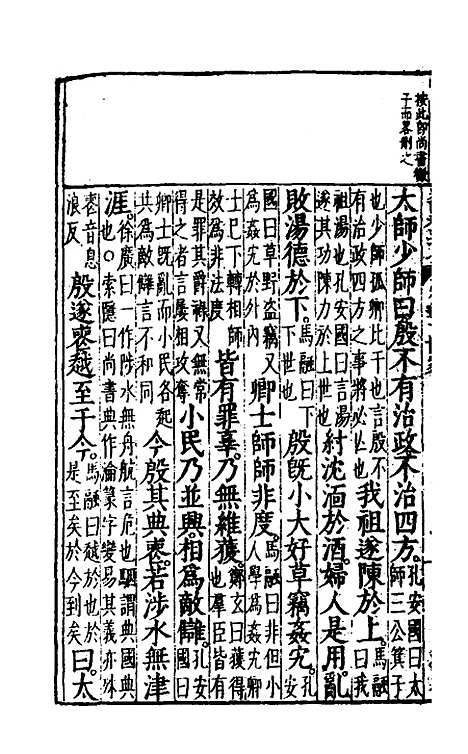 按此即尚書微
子而畧刪之
太師少師曰殷不有治政不治四方。孔安國曰太師三公箕子
也少師孤卿比干也言殷不有治政四方之事將必亡也我祖遂陳於上。馬融曰我
祖湯也孔安國曰言湯遂其功陳力於上世也紂沈湎於酒。婦人是用。亂
敗湯德於下。馬融曰下下世也殷旣小大好草竊姦宄。孔安
國曰草野盗竊又爲姦宄於外內卿士師師非度。馬融曰非但小人學爲姦宄卿
士已下轉相師效爲非法度皆有罪辜。乃無維獲。鄭玄曰獲得也群臣皆有
是罪其爵祿又無常得之者言屢相攻奪小民乃並興。相爲敵讎。孔安國曰
卿士旣亂而小民各起共爲敵讎言不和同今殷其典喪。若涉水無津
涯。徐廣曰一作陟水無舟航言危也駰謂典國典也○索隱曰尚書典作淪篆字變易其義亦殊
喪音息浪反殷遂喪越至于今。馬融曰越於也於是至矣於今到矣曰。太